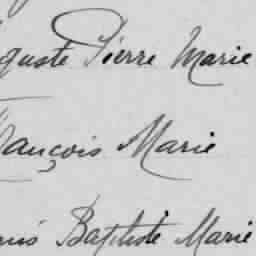 guste Pierre Marie
François Marie
Baptiste Marie